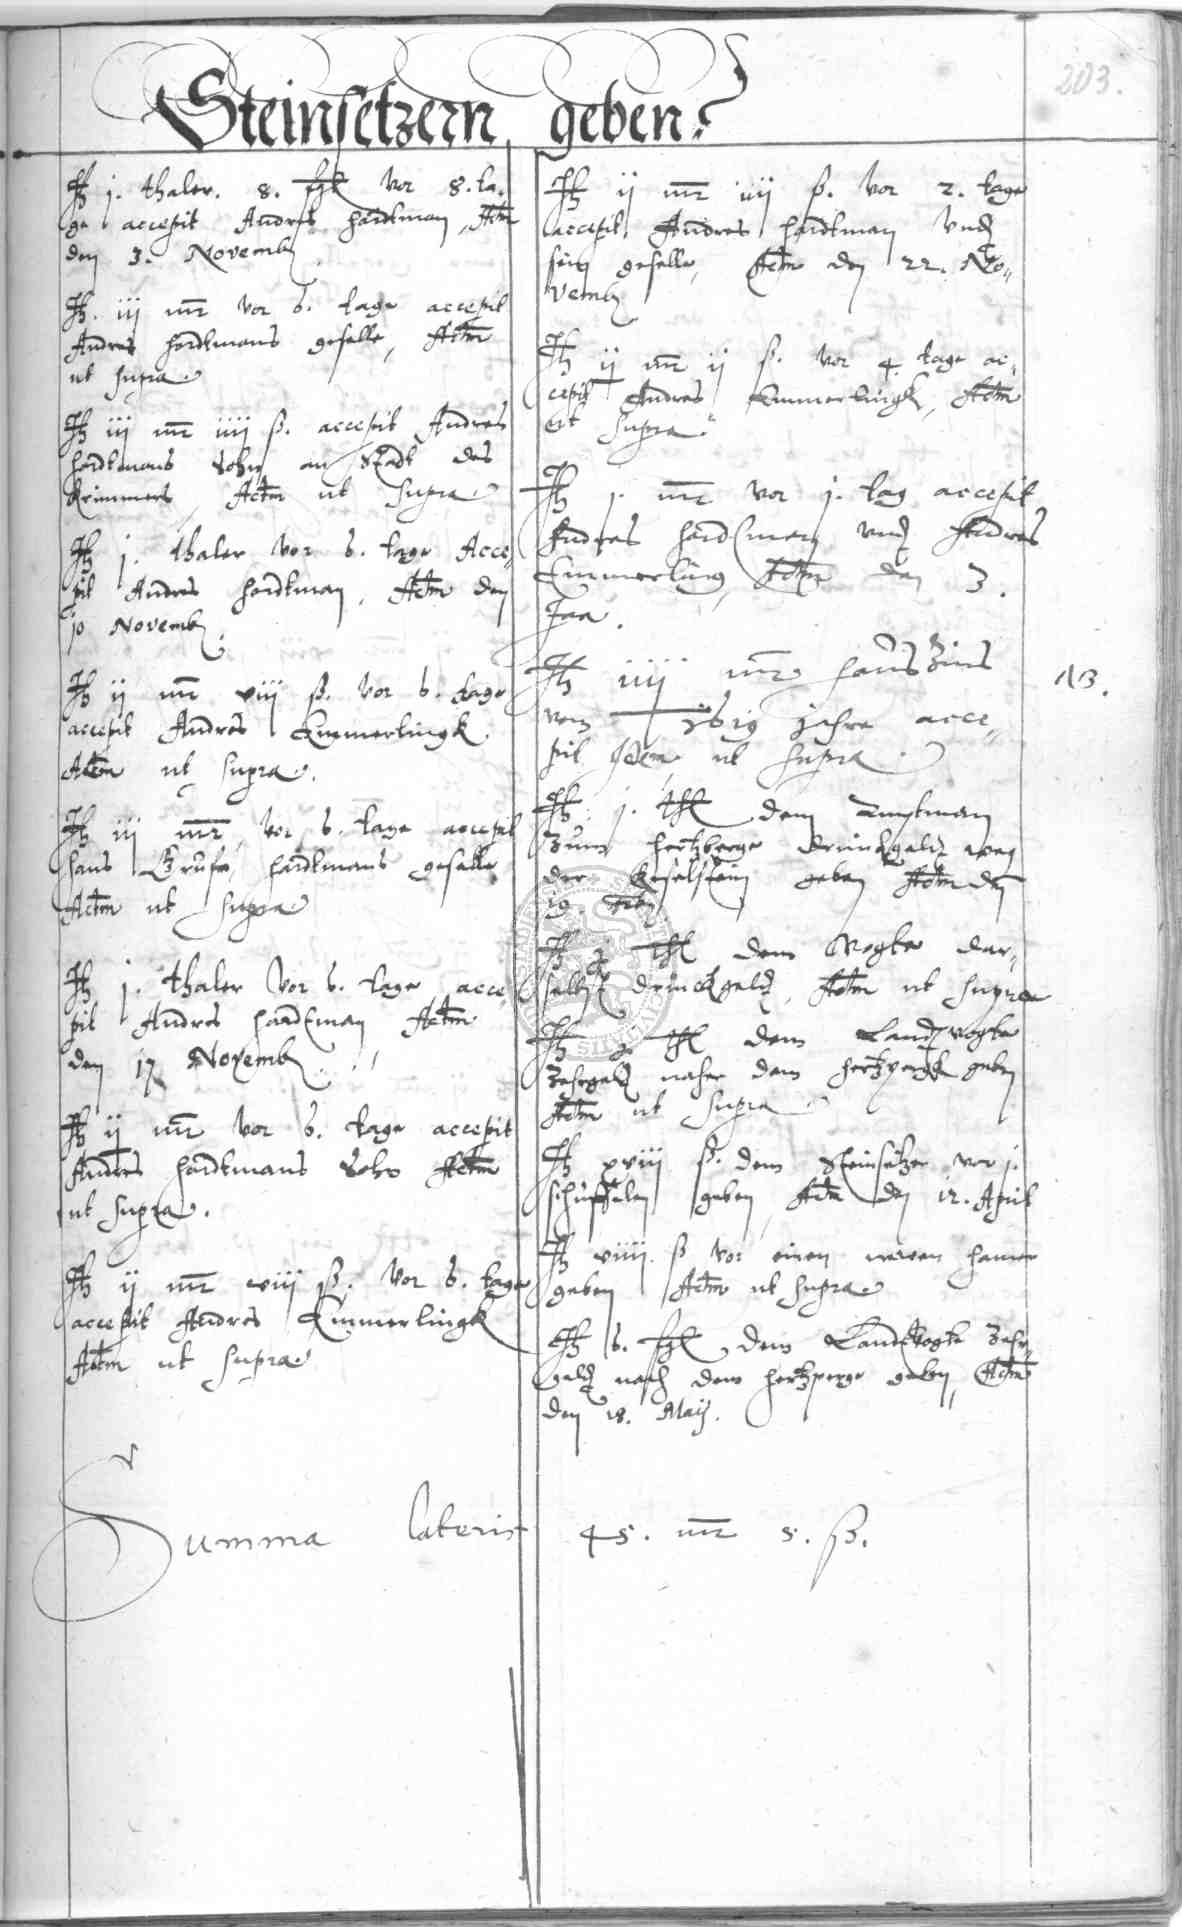 203.
Steinsetzern geben.
It j. thaler. 8. fgl vor 8. ta,
ge accepit Andres Hardtman, Actm
den 3. Novemb
It. iii mr vor 6. tage accepit
Andres Hardtmans geselle, Actm
ut supra.
It iii mr iiii ß. accepit Andres
Hardtmans Sohn an Stadt des
Krimmers, Actm ut supra
It j. thaler vor 6. tage Acce,
pit Andres Hardtman, Actm den
10 Novemb
It ii mr viii ß. vor 6. tage
accepit Andres Emmerlingk
Actm ut supra.
It iii mr, vor 6. tage accepit
Hans Hardtmans geselle
Actm ut supra
It j. thaler vor 6. tage acce
pit Andres Hardtman Actm
den 17 Novemb
It ii mr vor 6. tage accepit
Andres Hardtmans Sohn Actm
ut supra.
It ii mr viii ß. vor 6. tage
accepit Andres Emmerlingk
Actm ut supra
It ii mr iiii ß. vor 2. tage
accepit, Andres Hardtman Und
sein geselle, Actm den 22. No,,
vemb
It ii mr ii ß. vor 4. tage ac,
cepit Andres Emmerlingk, Actm
ut supra.
It j. mr vor j. tag accepit
Andres Hardtman und Andres
Emmerling, Actm den 3.
Jan.
It iiii mr Hauszins
vom 1619 Jahre acce,,
pit Idem, ut supra
NB.
It j. thl dem Amptman
Zum Hertzberge drinckgeldt weg
der Keselstein geben Actm den
19.
It thl dem Vogte dar,
selbst drinckgeldt, Actm ut supra
It thl dem Landtvogte
Zehrgeldt nacher dem Hertzbergk geben
Actm ut supra
It xviii ß. dem Steinsetzer vor j.
schuffelen geben, Actm den 12. April
It viiii. ß vor einen newen hamer
geben Actm ut supra
It 6. fgl dem Landtvogte Zehr,
geldt nach dem Hertzperge geben, Actm
den 18. Maij.
Summa lateris 45. mr 5. ß.